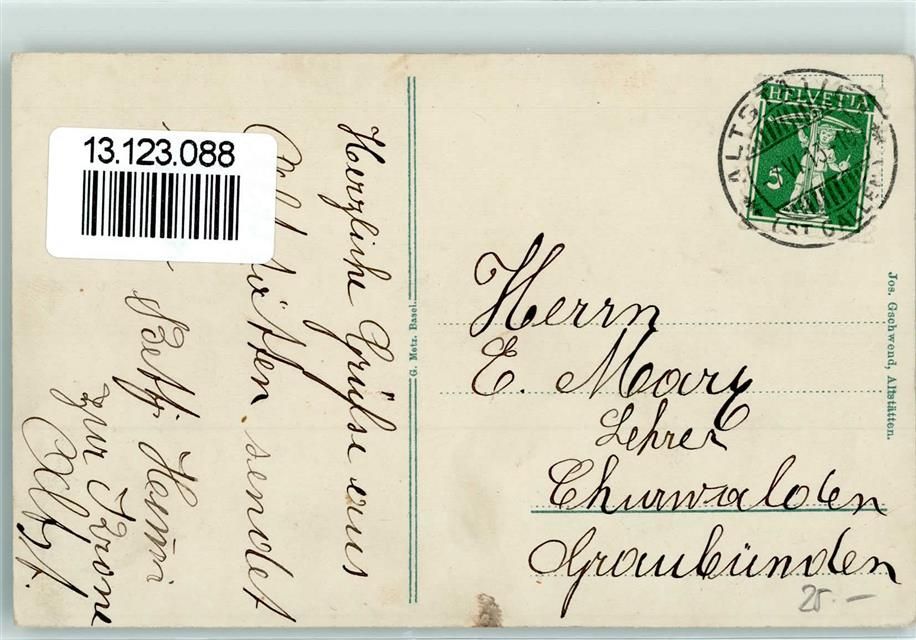 13.123.088
Herzliche Grüsse aus
Altstätten sendet
Betty
zur Krone
Altst.
G. Metz, Basel.
HELVETIA
5
ALTSTÄTTEN
(ST. GALLEN)
Herrn
E. Marx
Lehrer
Churwalden
Graubünden
25.—
Jos. Gschwend, Altstätten.